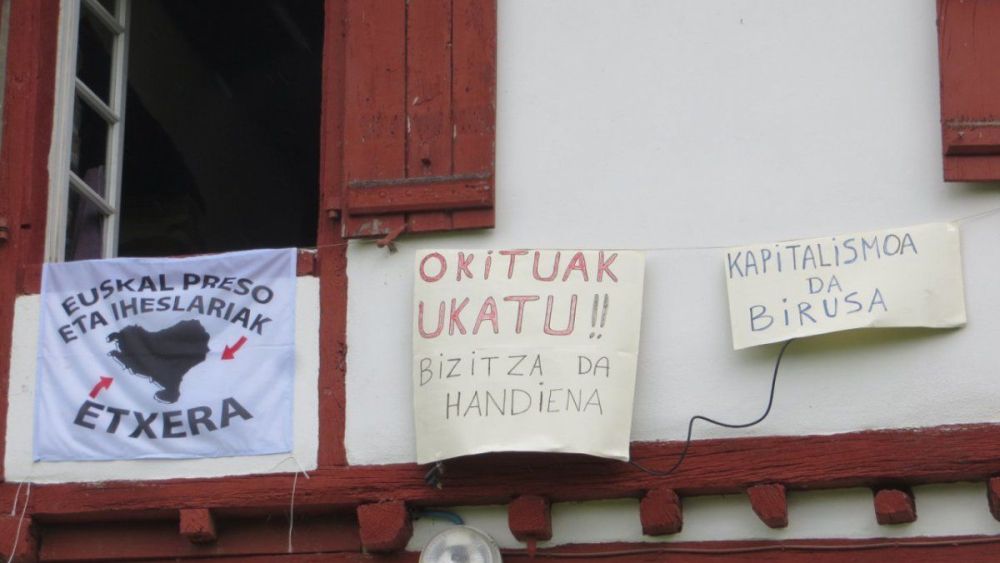 EUSKAL PRESO
ETA IHESLARIAK
ETXERA
OKITUAK
UKATU!!
BIZITZA DA
HANDIENA
KAPITALISMOA
DA
BIRUSA